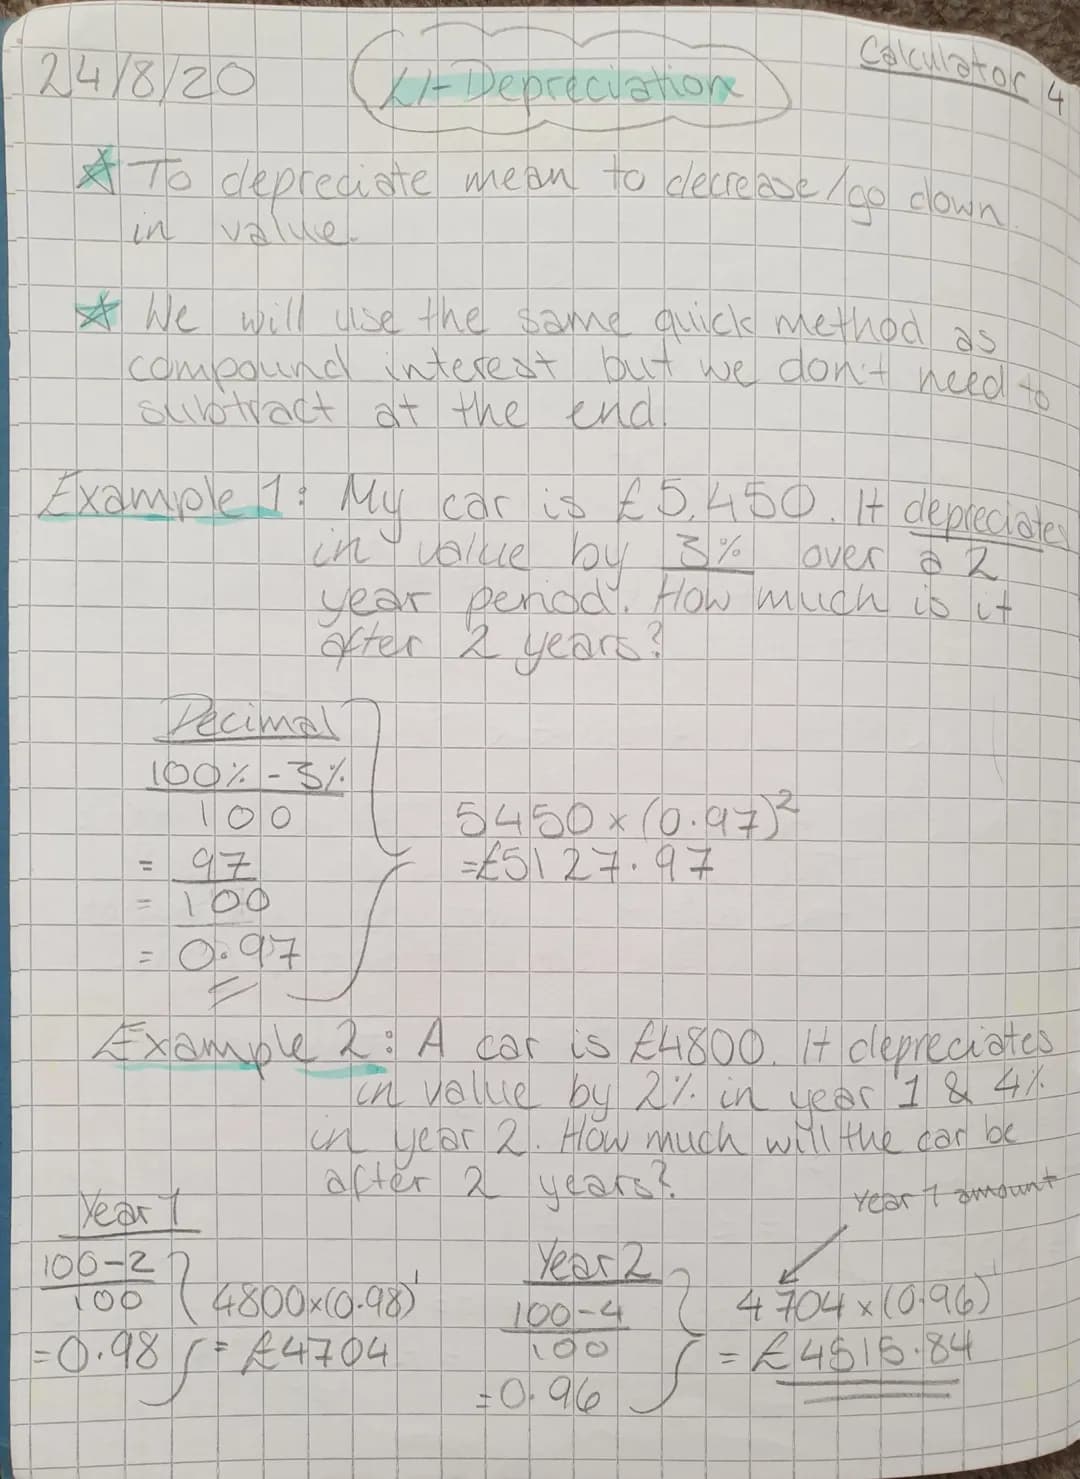 24/8/20
L1-Depreciation
Calculator 4
To depreciate mean to decrease/go down
in value.
We will use the same quick method as
compound interest but we don't need to
subtract at the end.
Example 1: My car is £5,450. It depreciates
in value by 3% over a 2
year period. How much is it
after 2 years?
Decimal
100% - 3%
100
= 97
= 100
= 0.97
5450 × (0.97)²
=£5127.97
Example 2: A car is £4800. It depreciates
in value by 2% in year 1 & 4%
in year 2. How much will the car be
after 2 years?
Year 1
100-2
100
=0.98
4800×(0.98)¹
= £4704
Year 2
100-4
100
=0.96
Year 1 amount
4704×(0.96)¹
= £4515.84